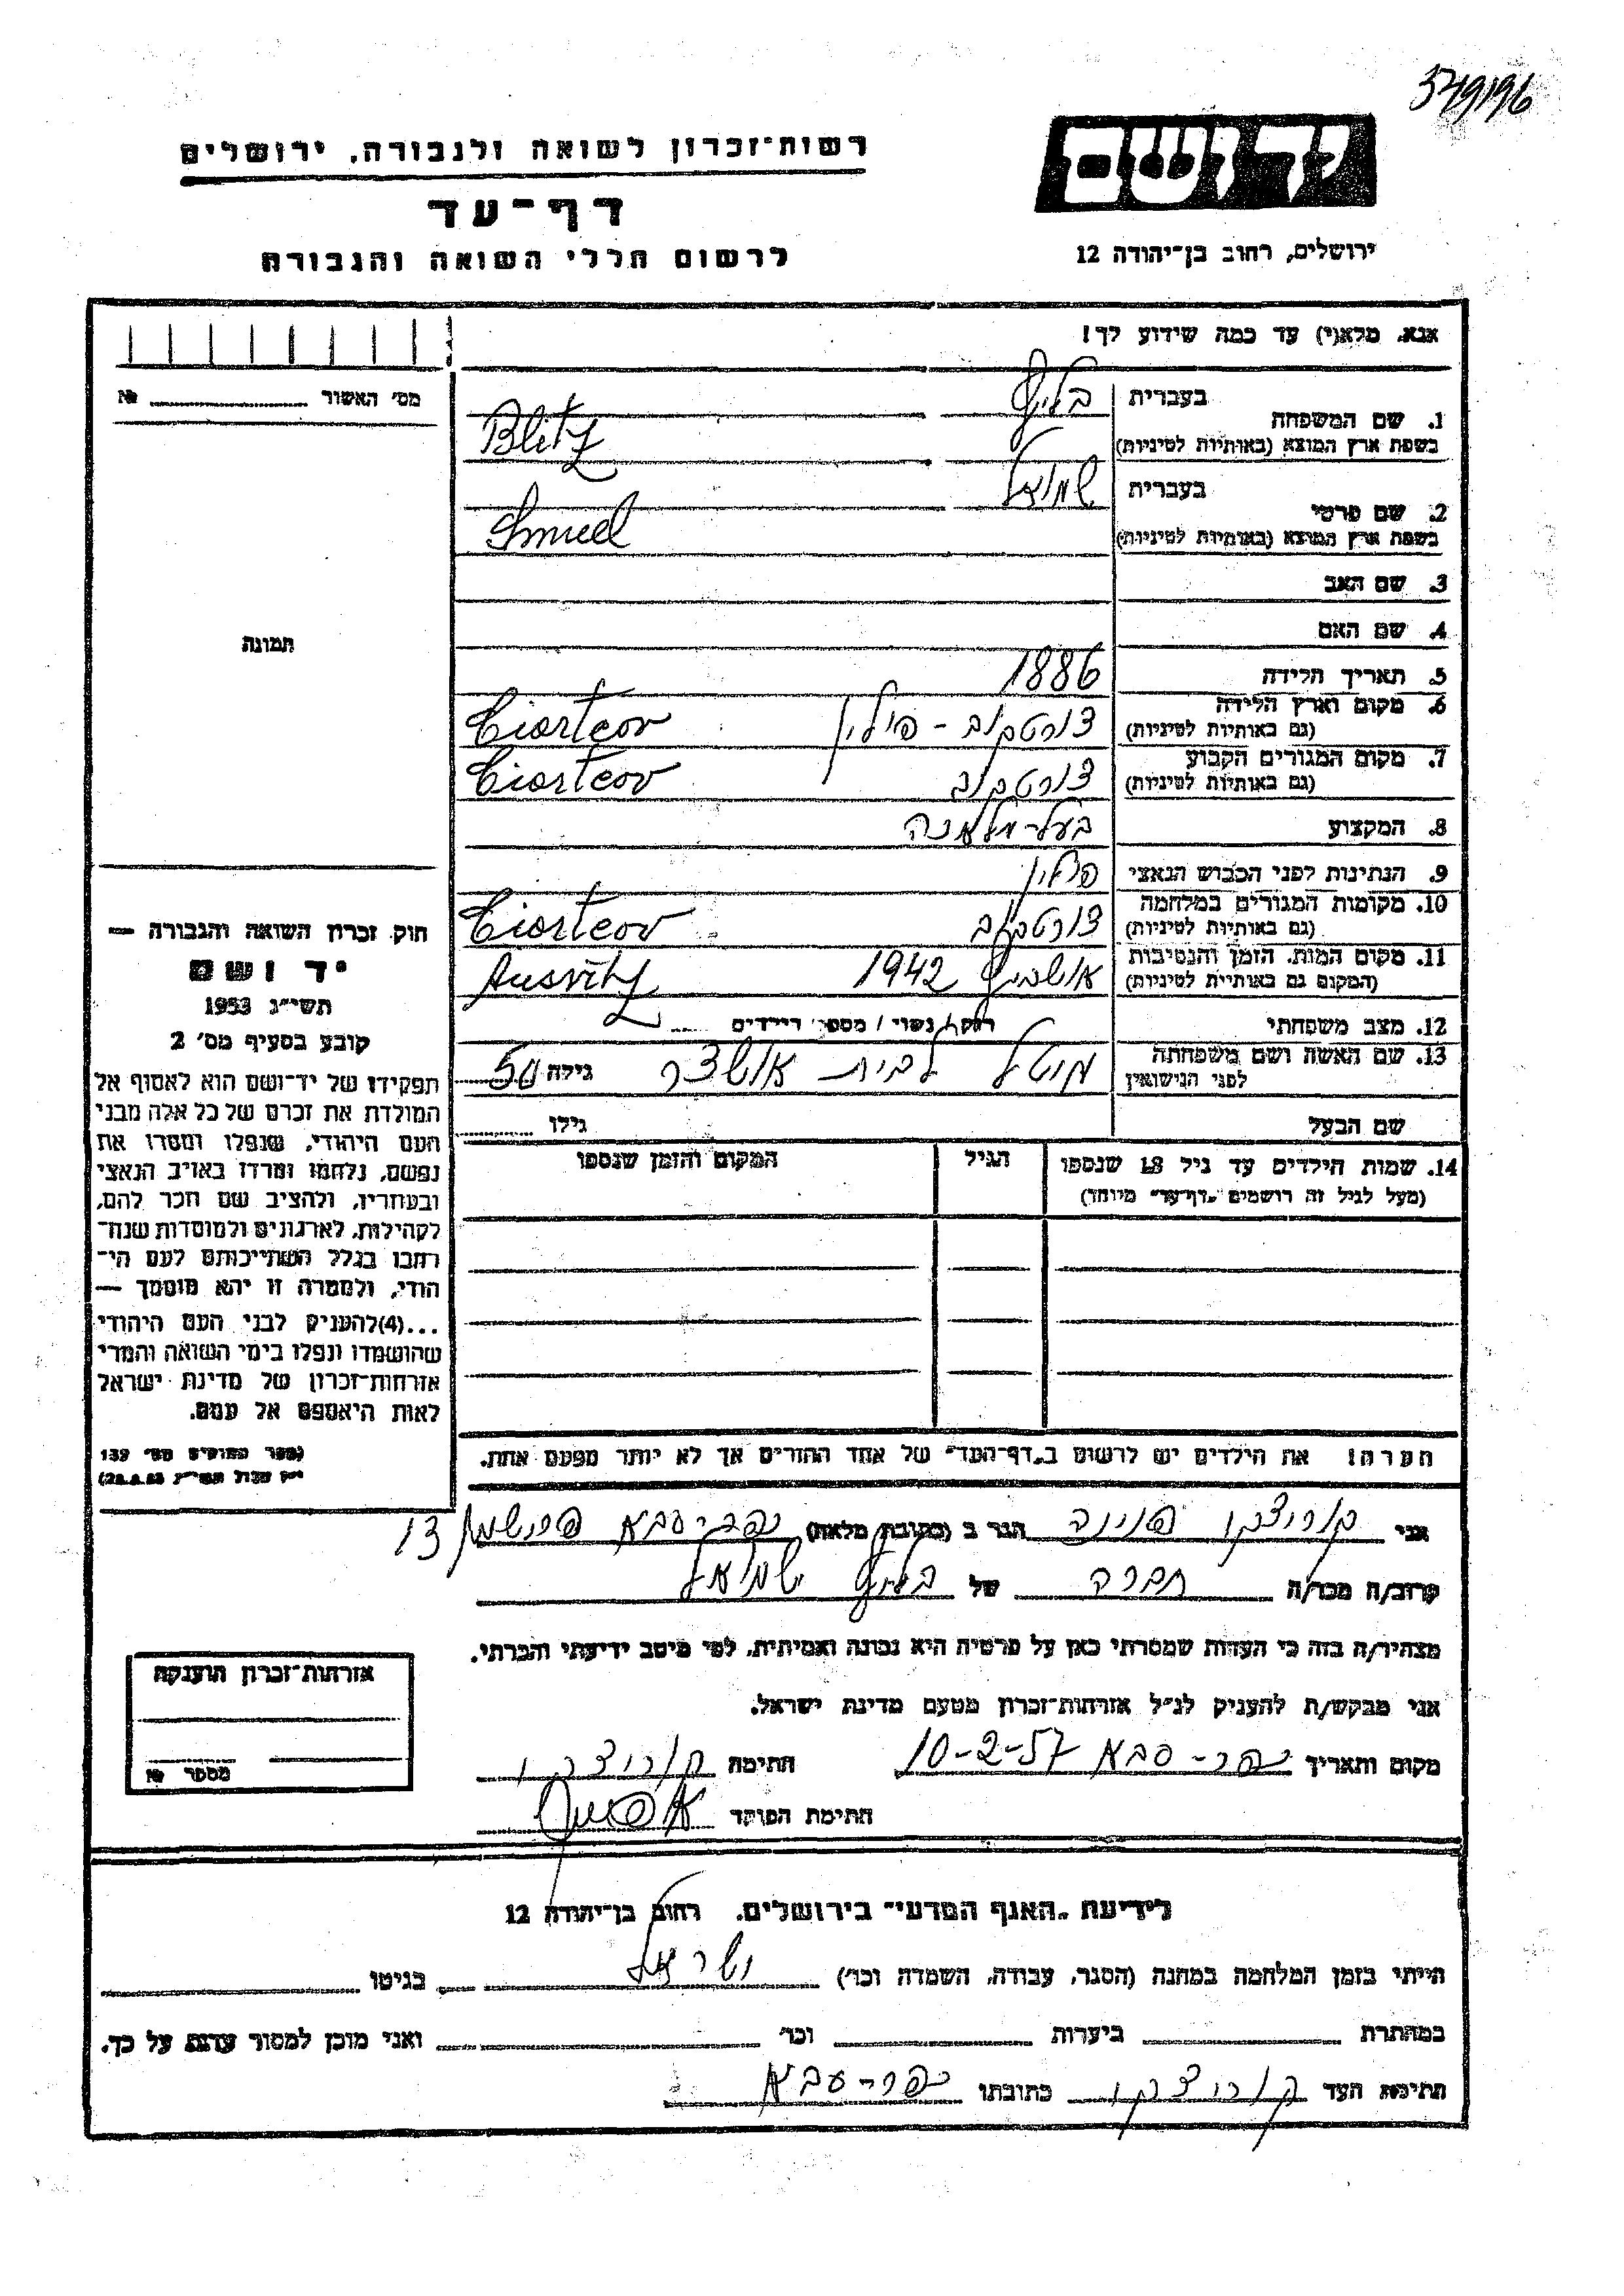 349196
יד ושם
רשות־זכרון לשואה ולגבורה, ירושלים
דף־עד
לרשום חללי השואה והגבורה
ירושלים, רחוב בן־יהודה 12
אנא, מלא(י) עד כמה שידוע לך!
מס׳ האשור № 
1. שם המשפחה בעברית בליץ
בשפת ארץ המוצא (באותיות לטיניות) Blitz
2. שם פרטי בעברית שמואל
בשפת ארץ המוצא (באותיות לטיניות) Smuel
3. שם האב
4. שם האם
תמונה
5. תאריך הלידה 1886
6. מקום וארץ הלידה (גם באותיות לטיניות) צורטקוב - פולין Ciortcov
7. מקום המגורים הקבוע (גם באותיות לטיניות) צורטקוב Ciortcov
8. המקצוע בעל-מלאכה
9. הנתינות לפני הכבוש הנאצי פולין
10. מקומות המגורים במלחמה (גם באותיות לטיניות) צורטקוב Ciortcov
11. מקום המות, הזמן והנסיבות (המקום גם באותיות לטיניות) אושביץ 1942 Ausvitz
12. מצב משפחתי רווק/נשוי/מספר הילדים
13. שם האשה ושם משפחתה לפני הנישואין לבית גילה 50
שם הבעל גילו
14. שמות הילדים עד גיל 18 שנספו (מעל לגיל זה רושמים „דף־עד״ מיוחד) הגיל המקום והזמן שנספו
הערה! את הילדים יש לרשום ב„דף־העד״ של אחד ההורים אך לא יותר מפעם אחת.
חוק זכרון השואה והגבורה —
יד ושם
תשי״ג 1953
קובע בסעיף מס׳ 2
תפקידו של יד־ושם הוא לאסוף אל
המולדת את זכרם של כל אלה מבני
העם היהודי, שנפלו ומסרו את
נפשם, נלחמו ומרדו באויב הנאצי
ובעוזריו, ולהציב שם וזכר להם,
לקהילות, לארגונים ולמוסדות שנח־
רבו בגלל השתייכותם לעם הי־
הודי, ולמטרה זו יהא מוסמך —
...(4)להעניק לבני העם היהודי
שהושמדו ונפלו בימי השואה והמרי
אזרחות־זכרון של מדינת ישראל
לאות היאספם אל עמם.
(ספר החוקים מס׳ 132
י״ז אלול תשי״ג 28.8.53)
אני קוריצקי פנינה הגר ב (כתובת מלאה) כפר-סבא 13
קרוב/ה מכר/ה חברה של בליץ שמואל
מצהיר/ה בזה כי העדות שמסרתי כאן על פרטיה היא נכונה ואמיתית, לפי מיטב ידיעתי והכרתי.
אני מבקש/ת להעניק לנ״ל אזרחות־זכרון מטעם מדינת ישראל.
מקום ותאריך כפר-סבא 10-2-57 חתימה קוריצקי
חתימת הפוקד
אזרחות־זכרון הוענקה
מספר №
לידיעת „האגף המדעי״ בירושלים, רחוב בן־יהודה 12
הייתי בזמן המלחמה במחנה (הסגר, עבודה, השמדה וכו׳) ישראל בגיטו
במחתרת ביערות וכו׳ ואני מוכן למסור עדות על כך.
חתימת העד קוריצקי כתובתו כפר-סבא